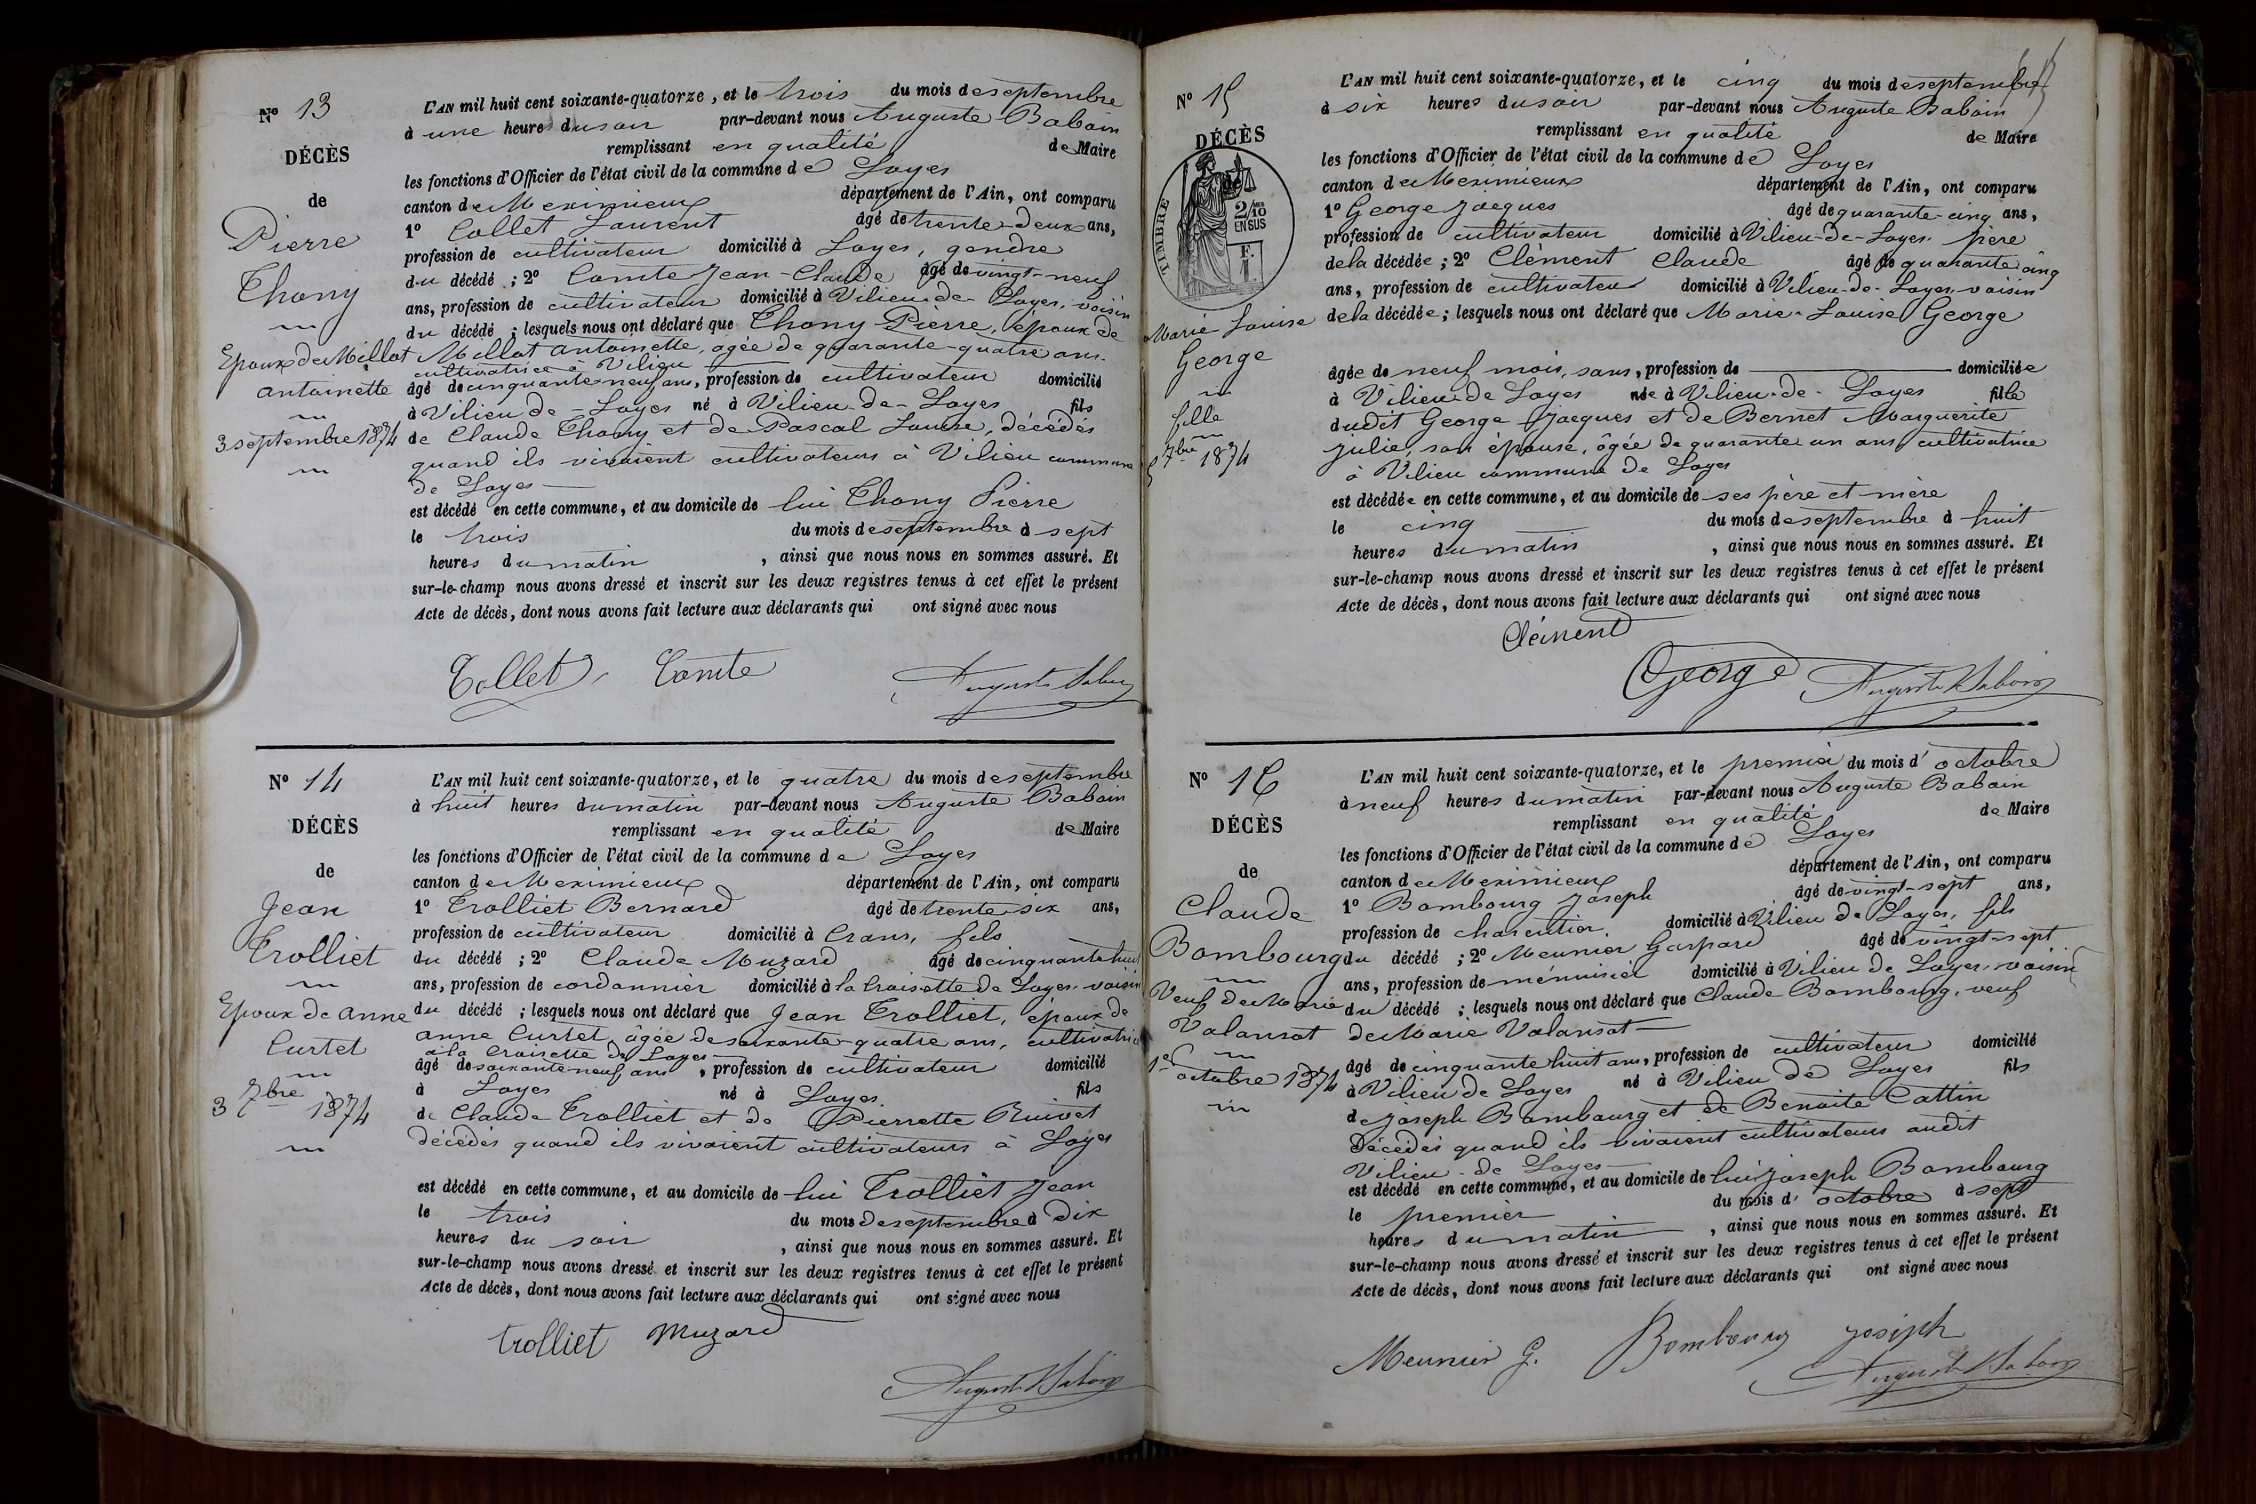 N° 13
DÉCÈS
de
Pierre
Thony
Epoux de Millot
antoinette
3 septembre 1874
L'AN mil huit cent soixante-quatorze, et le trois du mois de septembre
à une heure du soir par-devant nous Auguste Baboin
remplissant en qualité de Maire
les fonctions d'Officier de l'état civil de la commune de Loyes
canton de Meximieux département de l'Ain, ont comparu
1° Collet Laurent âgé de trente-deux ans,
profession de cultivateur domicilié à Loyes, gendre
du décédé ; 2° Comte Jean-Claude âgé de vingt-neuf
ans, profession de cultivateur domicilié à Vilieu-de-Loyes, voisin
du décédé ; lesquels nous ont déclaré que Thony Pierre, époux de
Millot antoinette, agée de quarante-quatre ans
cultivatrice à Vilieu
âgé de cinquante neuf ans, profession de cultivateur domicilié
à Vilieu de-Loyes né à Vilieu-de-Loyes fils
de Claude Thony et de Pascal Louise, décédés
quand ils vivaient cultivateurs à Vilieu commune
de Loyes
est décédé en cette commune, et au domicile de lui Thony Pierre
le trois du mois de septembre à sept
heures du matin , ainsi que nous nous en sommes assuré. Et
sur-le-champ nous avons dressé et inscrit sur les deux registres tenus à cet effet le présent
Acte de décès, dont nous avons fait lecture aux déclarants qui ont signé avec nous
Collet Comte Auguste Baboin
N° 14
DÉCÈS
de
Jean
Trolliet
Epoux de anne
Curtet
3 7bre 1874
L'AN mil huit cent soixante-quatorze, et le quatre du mois de septembre
à huit heures du matin par-devant nous Auguste Baboin
remplissant en qualité de Maire
les fonctions d'Officier de l'état civil de la commune de Loyes
canton de Meximieux département de l'Ain, ont comparu
1° Trolliet Bernard âgé de trente-six ans,
profession de cultivateur domicilié à Crans, fils
du décédé ; 2° Claude Muzard âgé de cinquante huit
ans, profession de cordonnier domicilié à la Croisette de Loyes, voisin
du décédé ; lesquels nous ont déclaré que Jean Trolliet, époux de
anne Curtet, âgée de soixante-quatre ans, cultivatrice
à la Croisette de Loyes
âgé de soixante neuf ans, profession de cultivateur domicilié
à Loyes né à Loyes fils
de Claude Trolliet et de Pierrette Ruivet
décédés quand ils vivaient cultivateurs à Loyes
est décédé en cette commune, et au domicile de lui Trolliet Jean
le trois du mois de septembre à dix
heures du soir , ainsi que nous nous en sommes assuré. Et
sur-le-champ nous avons dressé et inscrit sur les deux registres tenus à cet effet le présent
Acte de décès, dont nous avons fait lecture aux déclarants qui ont signé avec nous
trolliet Muzard
Auguste Baboin
N° 15
DÉCÈS
de
TIMBRE
2/10 EN SUS
F. 1
Marie Louise
George
fille
5 7bre 1874
L'AN mil huit cent soixante-quatorze, et le cinq du mois de septembre
à six heures du soir par-devant nous Auguste Baboin
remplissant en qualité de Maire
les fonctions d'Officier de l'état civil de la commune de Loyes
canton de Meximieux département de l'Ain, ont comparu
1° George Jacques âgé de quarante-cinq ans,
profession de cultivateur domicilié à Vilieu-de-Loyes père
de la décédée ; 2° Clément Claude âgé de quarante cinq
ans, profession de cultivateur domicilié à Vilieu-de-Loyes voisin
de la décédée ; lesquels nous ont déclaré que Marie-Louise George
âgée de neuf mois, sans, profession de domiciliée
à Vilieu de Loyes née à Vilieu-de-Loyes fille
dudit George Jacques et de Bernet Marguerite
julie, son épouse, âgée de quarante un ans cultivatrice
à Vilieu commune de Loyes
est décédée en cette commune, et au domicile de ses père et mère
le cinq du mois de septembre à huit
heures du matin , ainsi que nous nous en sommes assuré. Et
sur-le-champ nous avons dressé et inscrit sur les deux registres tenus à cet effet le présent
Acte de décès, dont nous avons fait lecture aux déclarants qui ont signé avec nous
Clément
George Auguste Baboin
N° 16
DÉCÈS
de
Claude
Bombourg
Veuf de Marie
Valansot
1er octobre 1874
L'AN mil huit cent soixante-quatorze, et le premier du mois d'octobre
à neuf heures du matin par-devant nous Auguste Baboin
remplissant en qualité de Maire
les fonctions d'Officier de l'état civil de la commune de Loyes
canton de Meximieux département de l'Ain, ont comparu
1° Bombourg Joseph âgé de vingt-sept ans,
profession de charcutier domicilié à Vilieu de Loyes, fils
du décédé ; 2° Meunier Gaspard âgé de vingt-sept
ans, profession de ménuisier domicilié à Vilieu de Loyes, voisin
du décédé ; lesquels nous ont déclaré que Claude Bombourg, veuf
de Marie Valansot
âgé de cinquante huit ans, profession de cultivateur domicilié
à Vilieu de Loyes né à Vilieu de Loyes fils
de Joseph Bombourg et de Benoite Cattin
Décédés quand ils vivaient cultivateurs audit
Vilieu-de Loyes
est décédé en cette commune, et au domicile de lui Joseph Bombourg
le premier du mois d'octobre à sept
heures du matin , ainsi que nous nous en sommes assuré. Et
sur-le-champ nous avons dressé et inscrit sur les deux registres tenus à cet effet le présent
Acte de décès, dont nous avons fait lecture aux déclarants qui ont signé avec nous
Meunier G. Bombourg joseph
Auguste Baboin